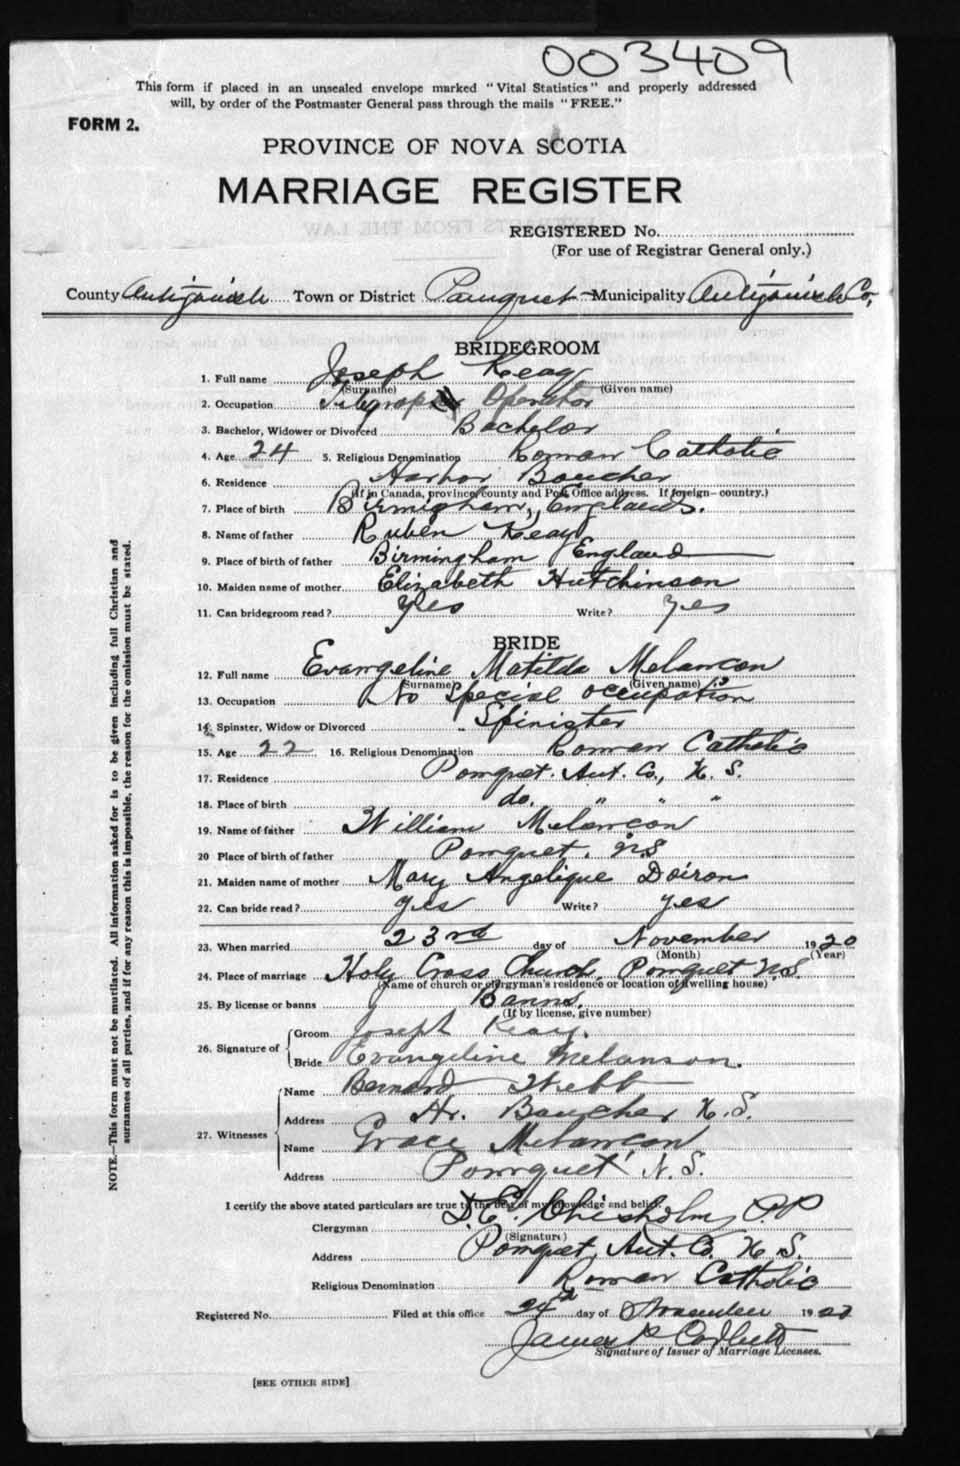 003409
This form if placed in an unsealed envelope marked "Vital Statistics" and properly addressed
will, by order of the Postmaster General pass through the mails "FREE."
FORM 2.
PROVINCE OF NOVA SCOTIA
MARRIAGE REGISTER
REGISTERED No.
(For use of Registrar General only.)
County Antigonish Town or District Pomquet Municipality Antigonish Co,
BRIDEGROOM
1. Full name Joseph Keay
(Surname) (Given name)
2. Occupation Operator
3. Bachelor, Widower or Divorced Bachelor
4. Age 24 5. Religious Denomination Roman Catholic
6. Residence Harbor Boucher
(If in Canada, province, county and Post Office address. If foreign—country.)
7. Place of birth Birmigham, England.
8. Name of father Ruben Keay
9. Place of birth of father Birmingham England
10. Maiden name of mother Elizabeth Hutchinson
11. Can bridegroom read? Yes Write? Yes
BRIDE
12. Full name Evangeline Matilda Melancon
(Surname) (Given name)
13. Occupation No special occupation
14. Spinster, Widow or Divorced Spinister
15. Age 22 16. Religious Denomination Roman Catholic
17. Residence Pomquet. Ant. Co., N. S.
18. Place of birth do. " " "
19. Name of father William Melancon
20 Place of birth of father Pomquet, N.S
21. Maiden name of mother Mary Angelique Doiron
22. Can bride read? yes Write? yes
23. When married 23rd day of November 1920
(Month) (Year)
24. Place of marriage Holy Cross Church, Pomquet N.S.
(Name of church or clergyman's residence or location of dwelling house)
25. By license or banns Banns.
(If by license, give number)
26. Signature of Groom Joseph Keay.
Bride Evangeline Melanson.
27. Witnesses Name Bernard Webb
Address Hr. Boucher N.S.
Name Grace Melancon
Address Pomquet N.S.
I certify the above stated particulars are true to the best of my knowledge and belief.
Clergyman D.C. Chisholm, P.P
(Signature)
Address Pomquet, Ant. Co. N. S.
Religious Denomination Roman Catholic
Registered No. Filed at this office 24th day of November 1920
James P
Signature of Issuer of Marriage Licenses.
[SEE OTHER SIDE]
NOTE.—This form must not be mutilated. All information asked for is to be given including full Christian and
surnames of all parties, and if for any reason this is impossible, the reason for the omission must be stated.